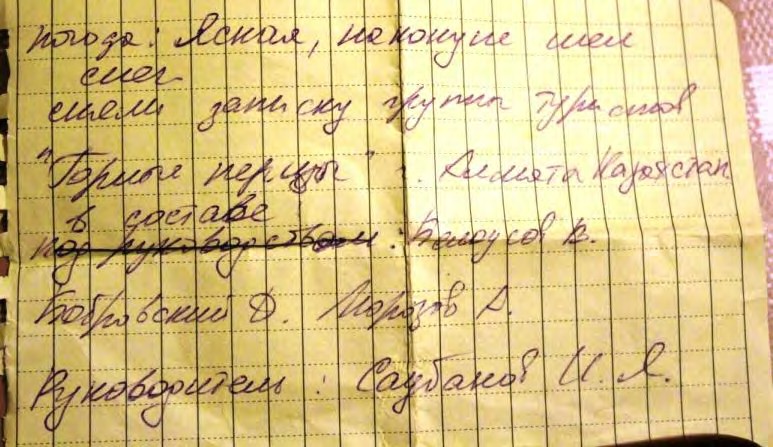 погода: Ясная, наконуне шел
снег
сняли записку группы туристов
"Горные перцы" г. Алмата Казахстан
в составе
под руководством: Белоусов В.
Бобровский Д. Морозов А.
Руководитель: Саубанов И. Я.